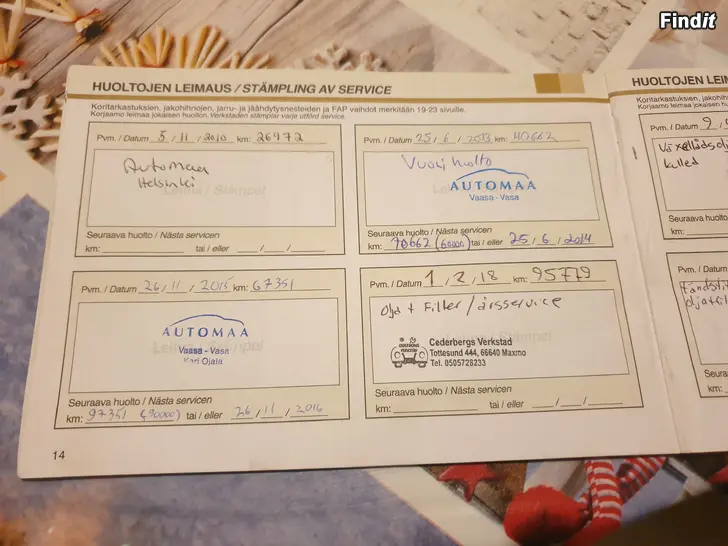 Findit
HUOLTOJEN LEIMAUS / STÄMPLING AV SERVICE
Koritarkastuksien, jakohihnojen, jarru- ja jäähdytysnesteiden ja FAP vaihdot merkitään 19-23 sivuille.
Korjaamo leimaa jokaisen huollon. Verkstaden stämplar varje utförd service.
Pvm. / Datum 5 / 11 / 2010 km: 26972
Automaa
Helsinki
Leima / Stämpel
Seuraava huolto / Nästa servicen
km: tai / eller / /
Pvm. / Datum 25 / 6 / 2013 km: 40662
Vuosihuolto
AUTOMAA
Vaasa - Vasa
Seuraava huolto / Nästa servicen
km: 70662 (60000) tai / eller 25 / 6 / 2014
Pvm. / Datum 26 / 11 / 2015 km: 67351
AUTOMAA
Vaasa - Vasa
Kari Ojala
Seuraava huolto / Nästa servicen
km: 97351 (90000) tai / eller 26 / 11 / 2016
Pvm. / Datum 1 / 2 / 18 km: 95779
Olja + Filter / årsservice
Cederbergs Verkstad
Tottesund 444, 66640 Maxmo
Tel. 0505728233
Seuraava huolto / Nästa servicen
km: tai / eller / /
14
HUOLTOJEN LEI
Koritarkastuksien, jak
Korjaamo leimaa joka
Pvm. / Datum 9
Växellådsolj
Seuraava huolto
km:
Pvm. / Datum
Seuraava
km: